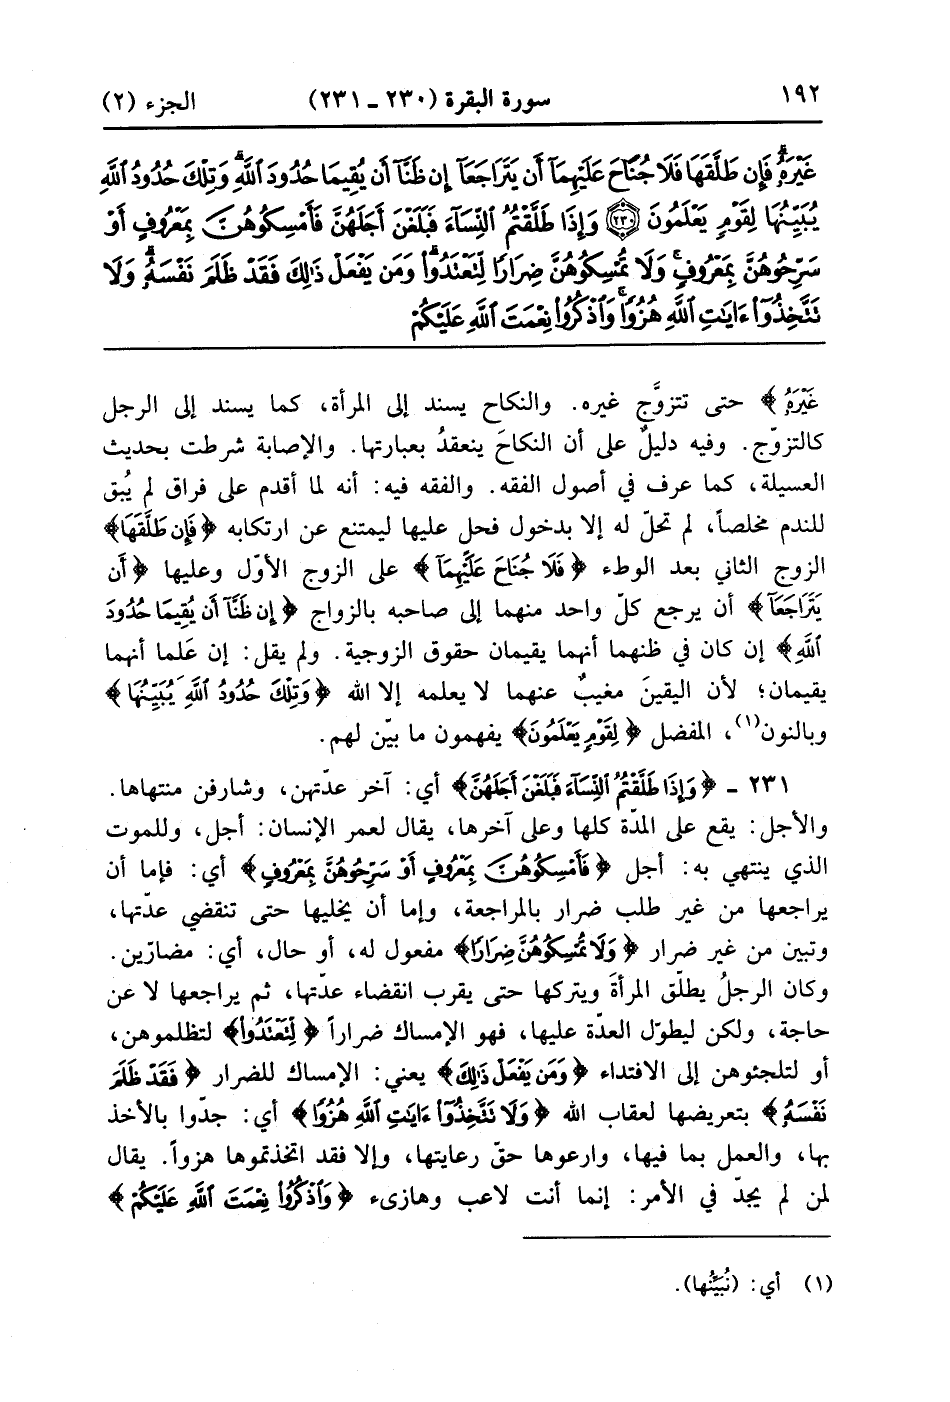 ١٩٢ سورة البقرة (٢٣٠ ـ ٢٣١) الجزء (٢)
غَيْرَهُۥۗ فَإِن طَلَّقَهَا فَلَا جُنَاحَ عَلَيْهِمَآ أَن يَتَرَاجَعَآ إِن ظَنَّآ أَن يُقِيمَا حُدُودَ ٱللَّهِۗ وَتِلْكَ حُدُودُ ٱللَّهِ
يُبَيِّنُهَا لِقَوْمٍ يَعْلَمُونَ ﴿٢٣٠﴾ وَإِذَا طَلَّقْتُمُ ٱلنِّسَآءَ فَبَلَغْنَ أَجَلَهُنَّ فَأَمْسِكُوهُنَّ بِمَعْرُوفٍ أَوْ
سَرِّحُوهُنَّ بِمَعْرُوفٍۚ وَلَا تُمْسِكُوهُنَّ ضِرَارًا لِّتَعْتَدُوا۟ۚ وَمَن يَفْعَلْ ذَٰلِكَ فَقَدْ ظَلَمَ نَفْسَهُۥۚ وَلَا
تَتَّخِذُوٓا۟ ءَايَٰتِ ٱللَّهِ هُزُوًاۚ وَٱذْكُرُوا۟ نِعْمَتَ ٱللَّهِ عَلَيْكُمْ
غَيْرَهُۥ﴾ حتى تتزوَّج غيره. والنكاح يسند إلى المرأة، كما يسند إلى الرجل
كالتزوّج. وفيه دليلٌ على أن النكاحَ ينعقدُ بعبارتها. والإصابة شرطت بحديث
العسيلة، كما عرف في أصول الفقه. والفقه فيه: أنه لما أقدم على فراق لم يُبق
للندم مخلصاً، لم تحلّ له إلا بدخول فحل عليها ليمتنع عن ارتكابه ﴿فَإِن طَلَّقَهَا﴾
الزوج الثاني بعد الوطء ﴿فَلَا جُنَاحَ عَلَيْهِمَآ﴾ على الزوج الأوّل وعليها ﴿أَن
يَتَرَاجَعَآ﴾ أن يرجع كلّ واحد منهما إلى صاحبه بالزواج ﴿إِن ظَنَّآ أَن يُقِيمَا حُدُودَ
ٱللَّهِ﴾ إن كان في ظنهما أنهما يقيمان حقوق الزوجية. ولم يقل: إن عَلما أنهما
يقيمان؛ لأن اليقينَ مغيبٌ عنهما لا يعلمه إلا الله ﴿وَتِلْكَ حُدُودُ ٱللَّهِ يُبَيِّنُهَا﴾
وبالنون(١)، المفضل ﴿لِقَوْمٍ يَعْلَمُونَ﴾ يفهمون ما بيّن لهم.
٢٣١ ـ ﴿وَإِذَا طَلَّقْتُمُ ٱلنِّسَآءَ فَبَلَغْنَ أَجَلَهُنَّ﴾ أي: آخر عدّتهن، وشارفن منتهاها.
والأجل: يقع على المدّة كلها وعلى آخرها، يقال لعمر الإنسان: أجل، وللموت
الذي ينتهي به: أجل ﴿فَأَمْسِكُوهُنَّ بِمَعْرُوفٍ أَوْ سَرِّحُوهُنَّ بِمَعْرُوفٍ﴾ أي: فإما أن
يراجعها من غير طلب ضرار بالمراجعة، وإما أن يخليها حتى تنقضي عدّتها،
وتبين من غير ضرار ﴿وَلَا تُمْسِكُوهُنَّ ضِرَارًا﴾ مفعول له، أو حال، أي: مضارّين.
وكان الرجلُ يطلّق المرأةَ ويتركها حتى يقرب انقضاء عدّتها، ثم يراجعها لا عن
حاجة، ولكن ليطوّل العدّة عليها، فهو الإمساك ضراراً ﴿لِّتَعْتَدُوا۟﴾ لتظلموهن،
أو لتلجئوهن إلى الافتداء ﴿وَمَن يَفْعَلْ ذَٰلِكَ﴾ يعني: الإمساك للضرار ﴿فَقَدْ ظَلَمَ
نَفْسَهُۥ﴾ بتعريضها لعقاب الله ﴿وَلَا تَتَّخِذُوٓا۟ ءَايَٰتِ ٱللَّهِ هُزُوًا﴾ أي: جدّوا بالأخذ
بها، والعمل بما فيها، وارعوها حقّ رعايتها، وإلا فقد اتخذتموها هزواً. يقال
لمن لم يجدّ في الأمر: إنما أنت لاعب وهازىء ﴿وَٱذْكُرُوا۟ نِعْمَتَ ٱللَّهِ عَلَيْكُمْ﴾
(١) أي: (نُبَيِّنُها).